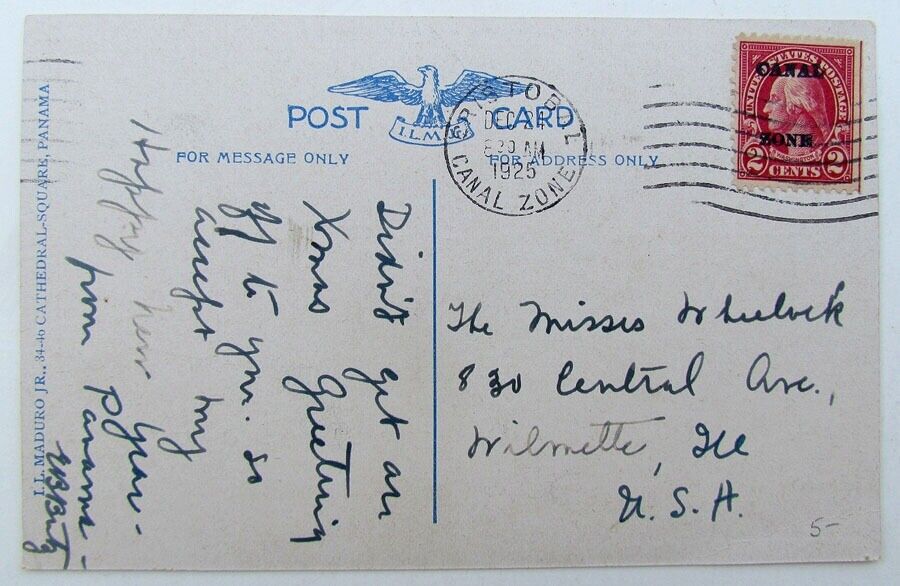 POST CARD
I.L.M. JR.
FOR MESSAGE ONLY
FOR ADDRESS ONLY
CRISTOBAL
DEC 24
8 30 AM
1925
CANAL ZONE
CANAL
ZONE
UNITED STATES POSTAGE
WASHINGTON
2 CENTS 2
I. L. MADURO JR., 34-46 CATHEDRAL-SQUARE, PANAMA
Didn't get an
Xmas Greeting
off to you. So
accept my
Happy New Year -
from Panama -
The Misses Wheelock
830 Central Ave.,
Wilmette, Ill
U.S.A.
5-